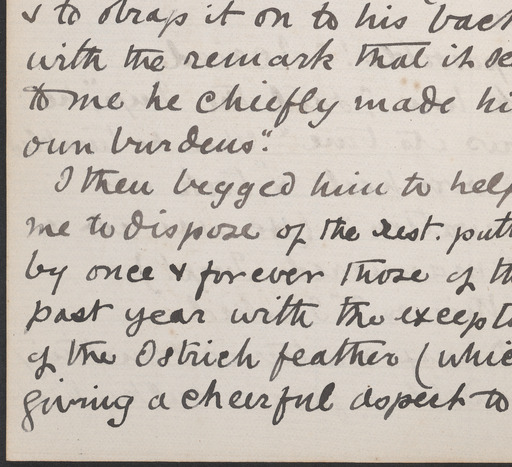 & to strap it on to his back
with the remark that it se
to me he chiefly made hi
own burdens".
I then begged him to help
me to dispose of the rest. putt
by once & for ever those of th
past year with the excepti
of the Ostrich feather (whic
giving a cheerful aspect to